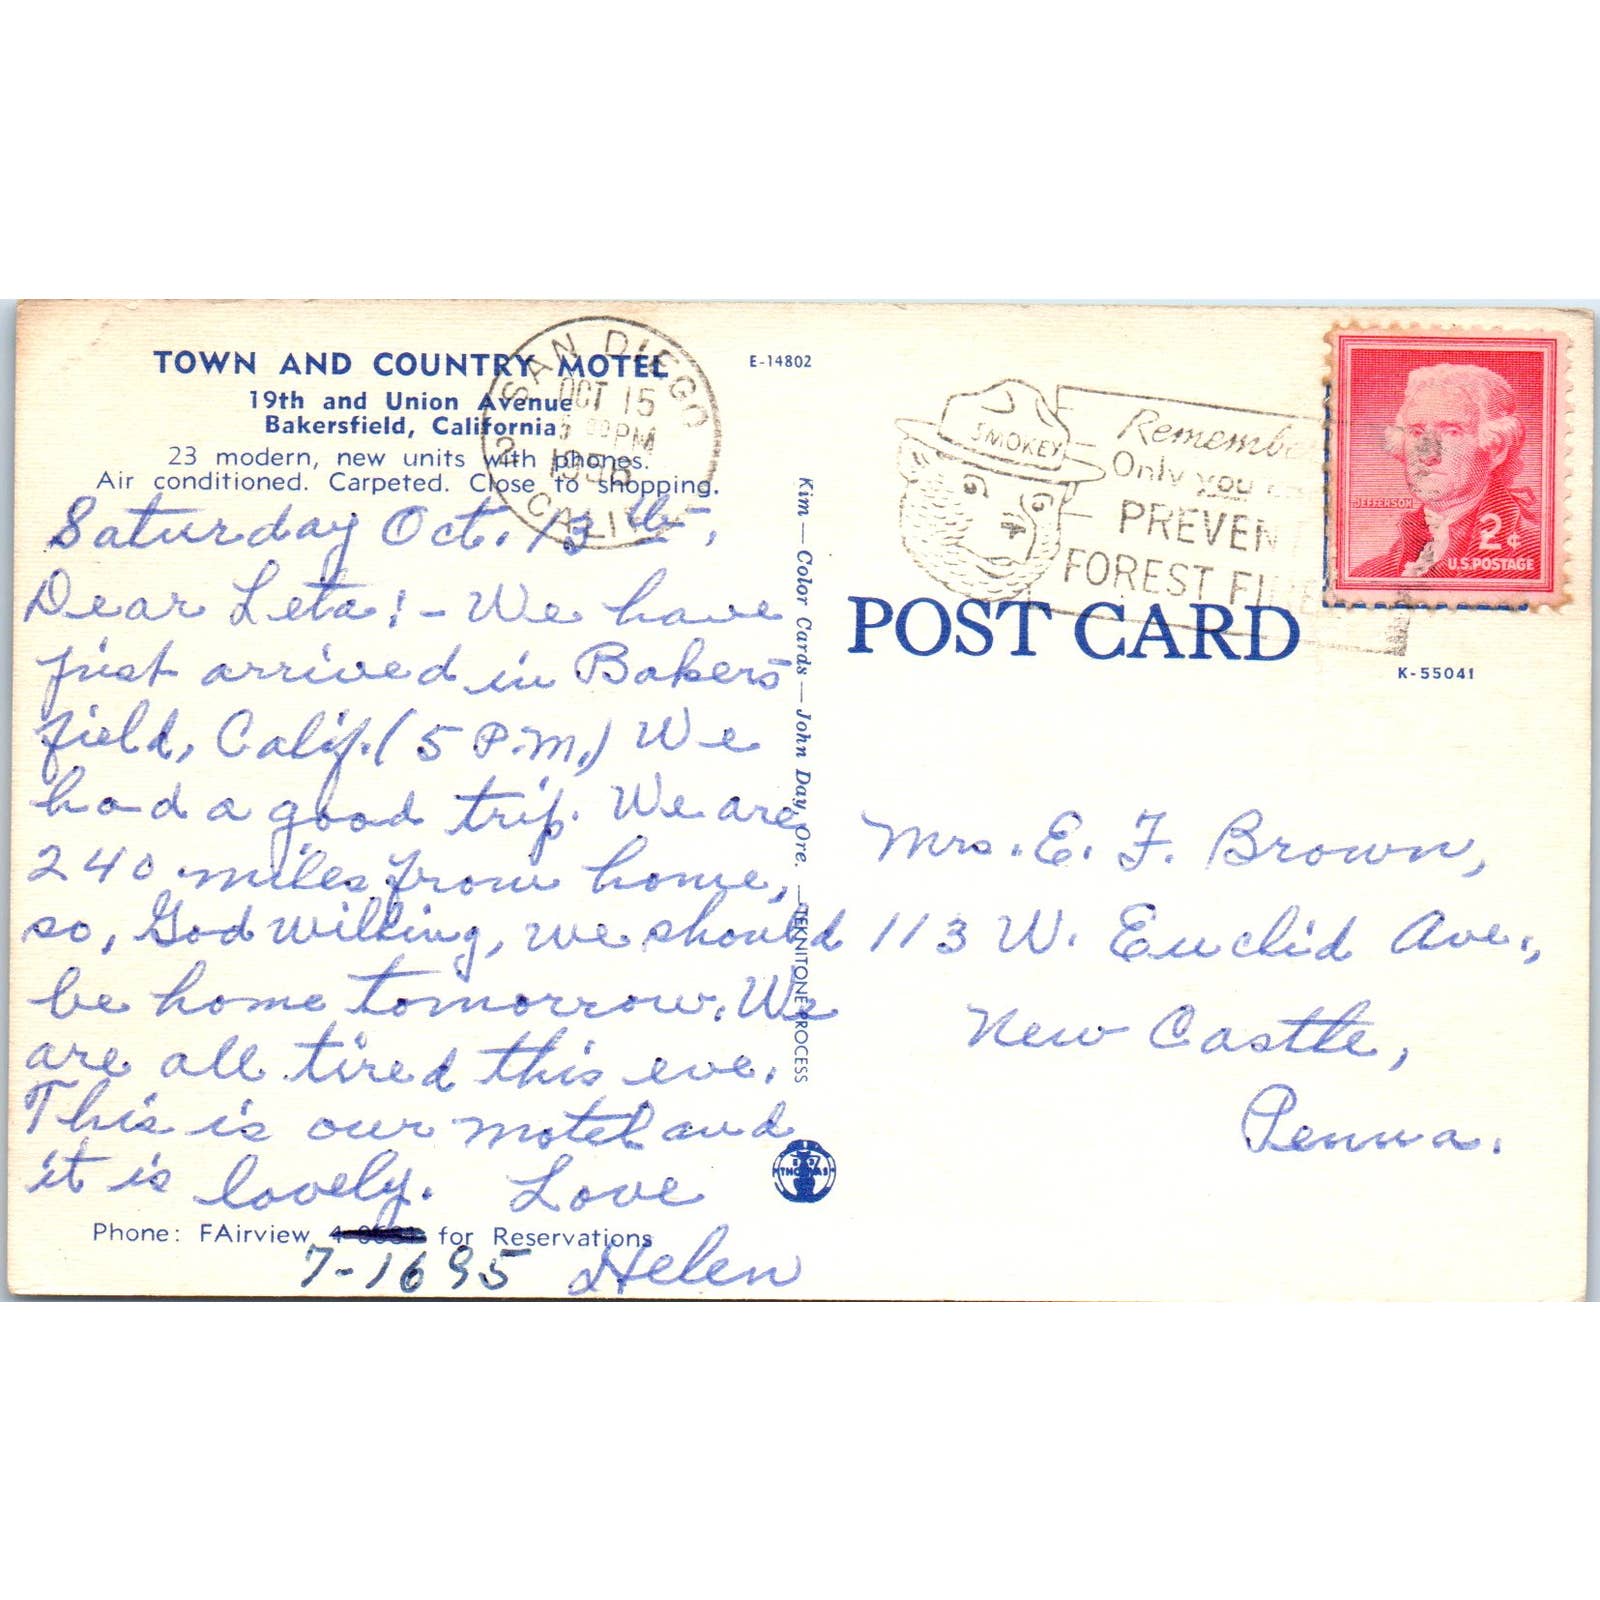 TOWN AND COUNTRY MOTEL
19th and Union Avenue
Bakersfield, California
23 modern, new units with phones.
Air conditioned. Carpeted. Close to shopping.
E-14802
SAN DIEGO
OCT 15
PM
1956
2 CALIF.
SMOKEY
Remember
Only you
PREVENT
FOREST FIRES
JEFFERSON
2¢
U.S. POSTAGE
POST CARD
K-55041
Saturday Oct. 13th,
Dear Leta! - We have
just arrived in Bakers-
field, Calif. (5 P.M.) We
had a good trip. We are
240 miles from home,
so, God willing, we should
be home tomorrow. We
are all tired this eve.
This is our motel and
it is lovely. Love
Helen
Phone: FAirview for Reservations
7-1695
Kim — Color Cards — John Day, Ore. — TEKNITONE PROCESS
THOMAS
Mrs. E. F. Brown,
113 W. Euclid Ave.,
New Castle,
Penna.